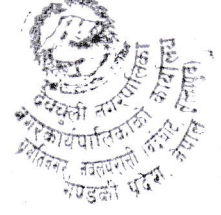 देवचुली नगरपालिका
नगरकार्यपालिकाको कार्यालय
प्रगतिनगर, नवलपरासी (बर्दघाट सुस्तापूर्व)
गण्डकी प्रदेश, नेपाल